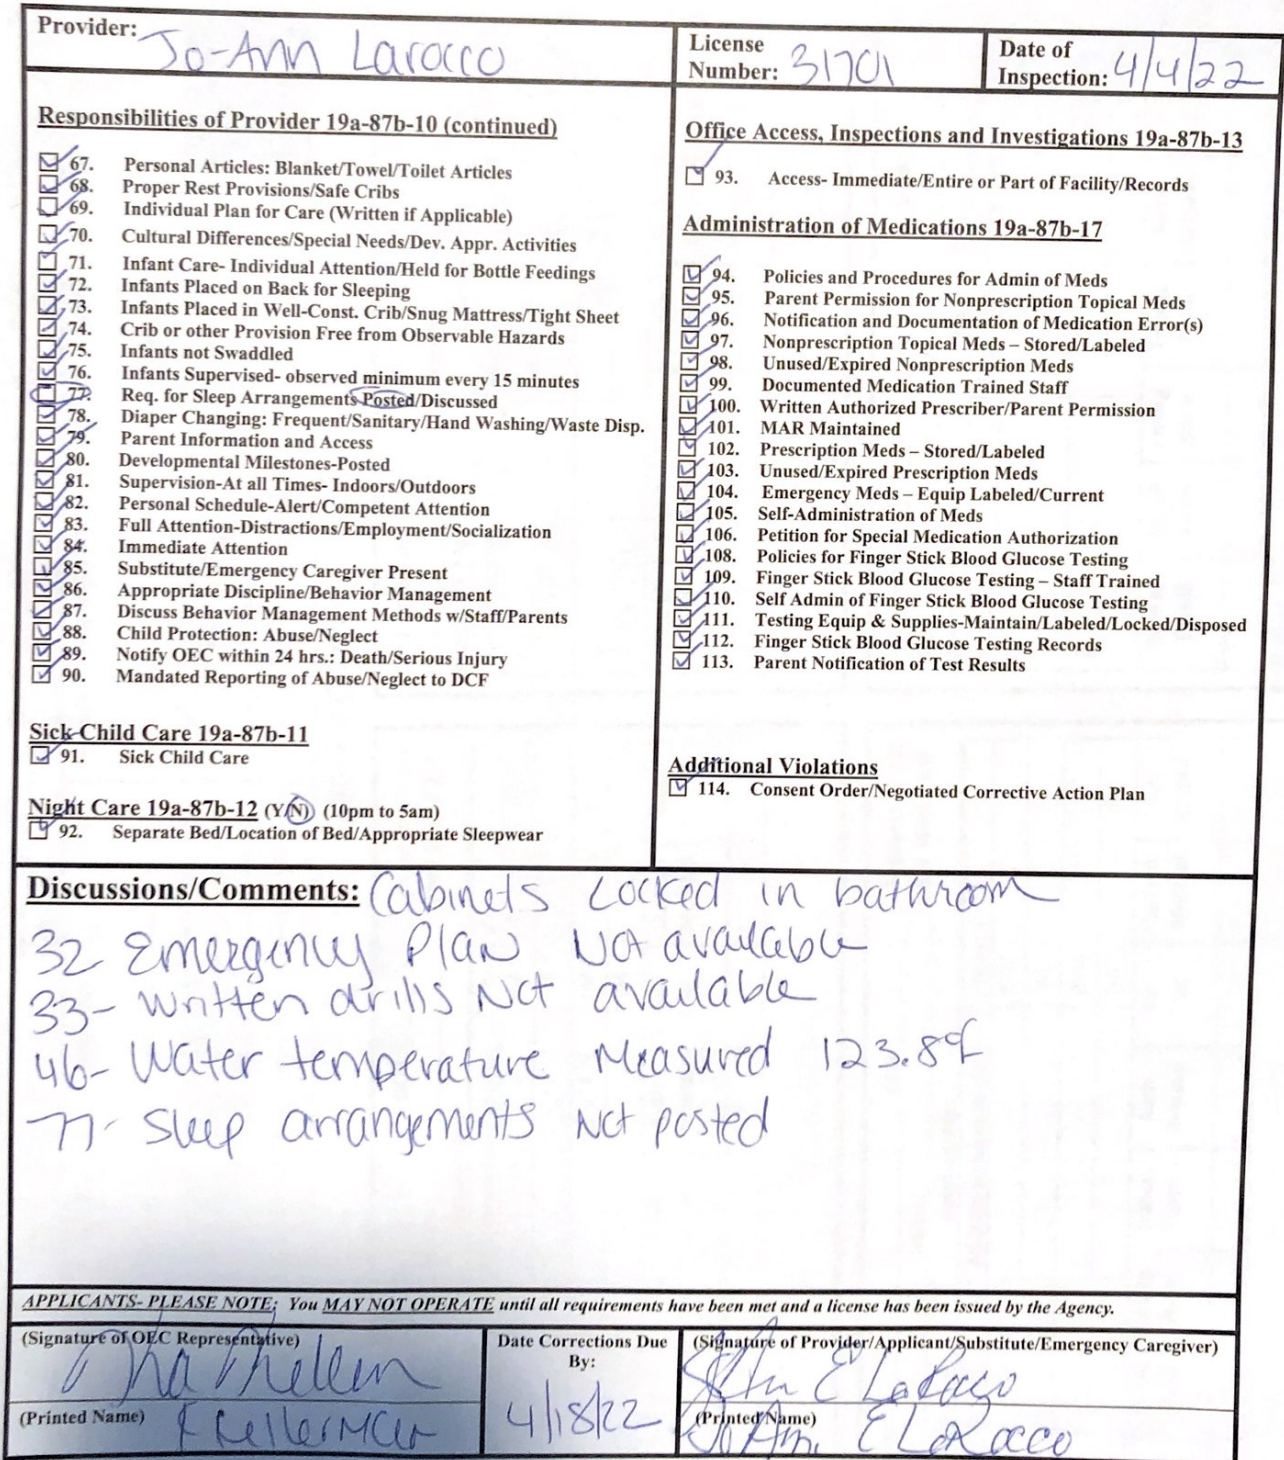 Provider: Jo-Ann Larocco
License Number: 31701
Date of Inspection: 4/4/22
Responsibilities of Provider 19a-87b-10 (continued)
67. Personal Articles: Blanket/Towel/Toilet Articles
68. Proper Rest Provisions/Safe Cribs
69. Individual Plan for Care (Written if Applicable)
70. Cultural Differences/Special Needs/Dev. Appr. Activities
71. Infant Care- Individual Attention/Held for Bottle Feedings
72. Infants Placed on Back for Sleeping
73. Infants Placed in Well-Const. Crib/Snug Mattress/Tight Sheet
74. Crib or other Provision Free from Observable Hazards
75. Infants not Swaddled
76. Infants Supervised- observed minimum every 15 minutes
77. Req. for Sleep Arrangements Posted/Discussed
78. Diaper Changing: Frequent/Sanitary/Hand Washing/Waste Disp.
79. Parent Information and Access
80. Developmental Milestones-Posted
81. Supervision-At all Times- Indoors/Outdoors
82. Personal Schedule-Alert/Competent Attention
83. Full Attention-Distractions/Employment/Socialization
84. Immediate Attention
85. Substitute/Emergency Caregiver Present
86. Appropriate Discipline/Behavior Management
87. Discuss Behavior Management Methods w/Staff/Parents
88. Child Protection: Abuse/Neglect
89. Notify OEC within 24 hrs.: Death/Serious Injury
90. Mandated Reporting of Abuse/Neglect to DCF
Sick Child Care 19a-87b-11
91. Sick Child Care
Night Care 19a-87b-12 (Y/N) (10pm to 5am)
92. Separate Bed/Location of Bed/Appropriate Sleepwear
Office Access, Inspections and Investigations 19a-87b-13
93. Access- Immediate/Entire or Part of Facility/Records
Administration of Medications 19a-87b-17
94. Policies and Procedures for Admin of Meds
95. Parent Permission for Nonprescription Topical Meds
96. Notification and Documentation of Medication Error(s)
97. Nonprescription Topical Meds – Stored/Labeled
98. Unused/Expired Nonprescription Meds
99. Documented Medication Trained Staff
100. Written Authorized Prescriber/Parent Permission
101. MAR Maintained
102. Prescription Meds – Stored/Labeled
103. Unused/Expired Prescription Meds
104. Emergency Meds – Equip Labeled/Current
105. Self-Administration of Meds
106. Petition for Special Medication Authorization
108. Policies for Finger Stick Blood Glucose Testing
109. Finger Stick Blood Glucose Testing – Staff Trained
110. Self Admin of Finger Stick Blood Glucose Testing
111. Testing Equip & Supplies-Maintain/Labeled/Locked/Disposed
112. Finger Stick Blood Glucose Testing Records
113. Parent Notification of Test Results
Additional Violations
114. Consent Order/Negotiated Corrective Action Plan
Discussions/Comments: Cabinets Locked in bathroom
32 Emergency Plan Not available
33- Written drills Not available
46- Water temperature Measured 123.8°F
77- Sleep arrangements Not posted
APPLICANTS- PLEASE NOTE: You MAY NOT OPERATE until all requirements have been met and a license has been issued by the Agency.
(Signature of OEC Representative)
(Printed Name)
Date Corrections Due By:
4/18/22
(Signature of Provider/Applicant/Substitute/Emergency Caregiver)
E LaRocco
(Printed Name)
JoAnn E LaRocco